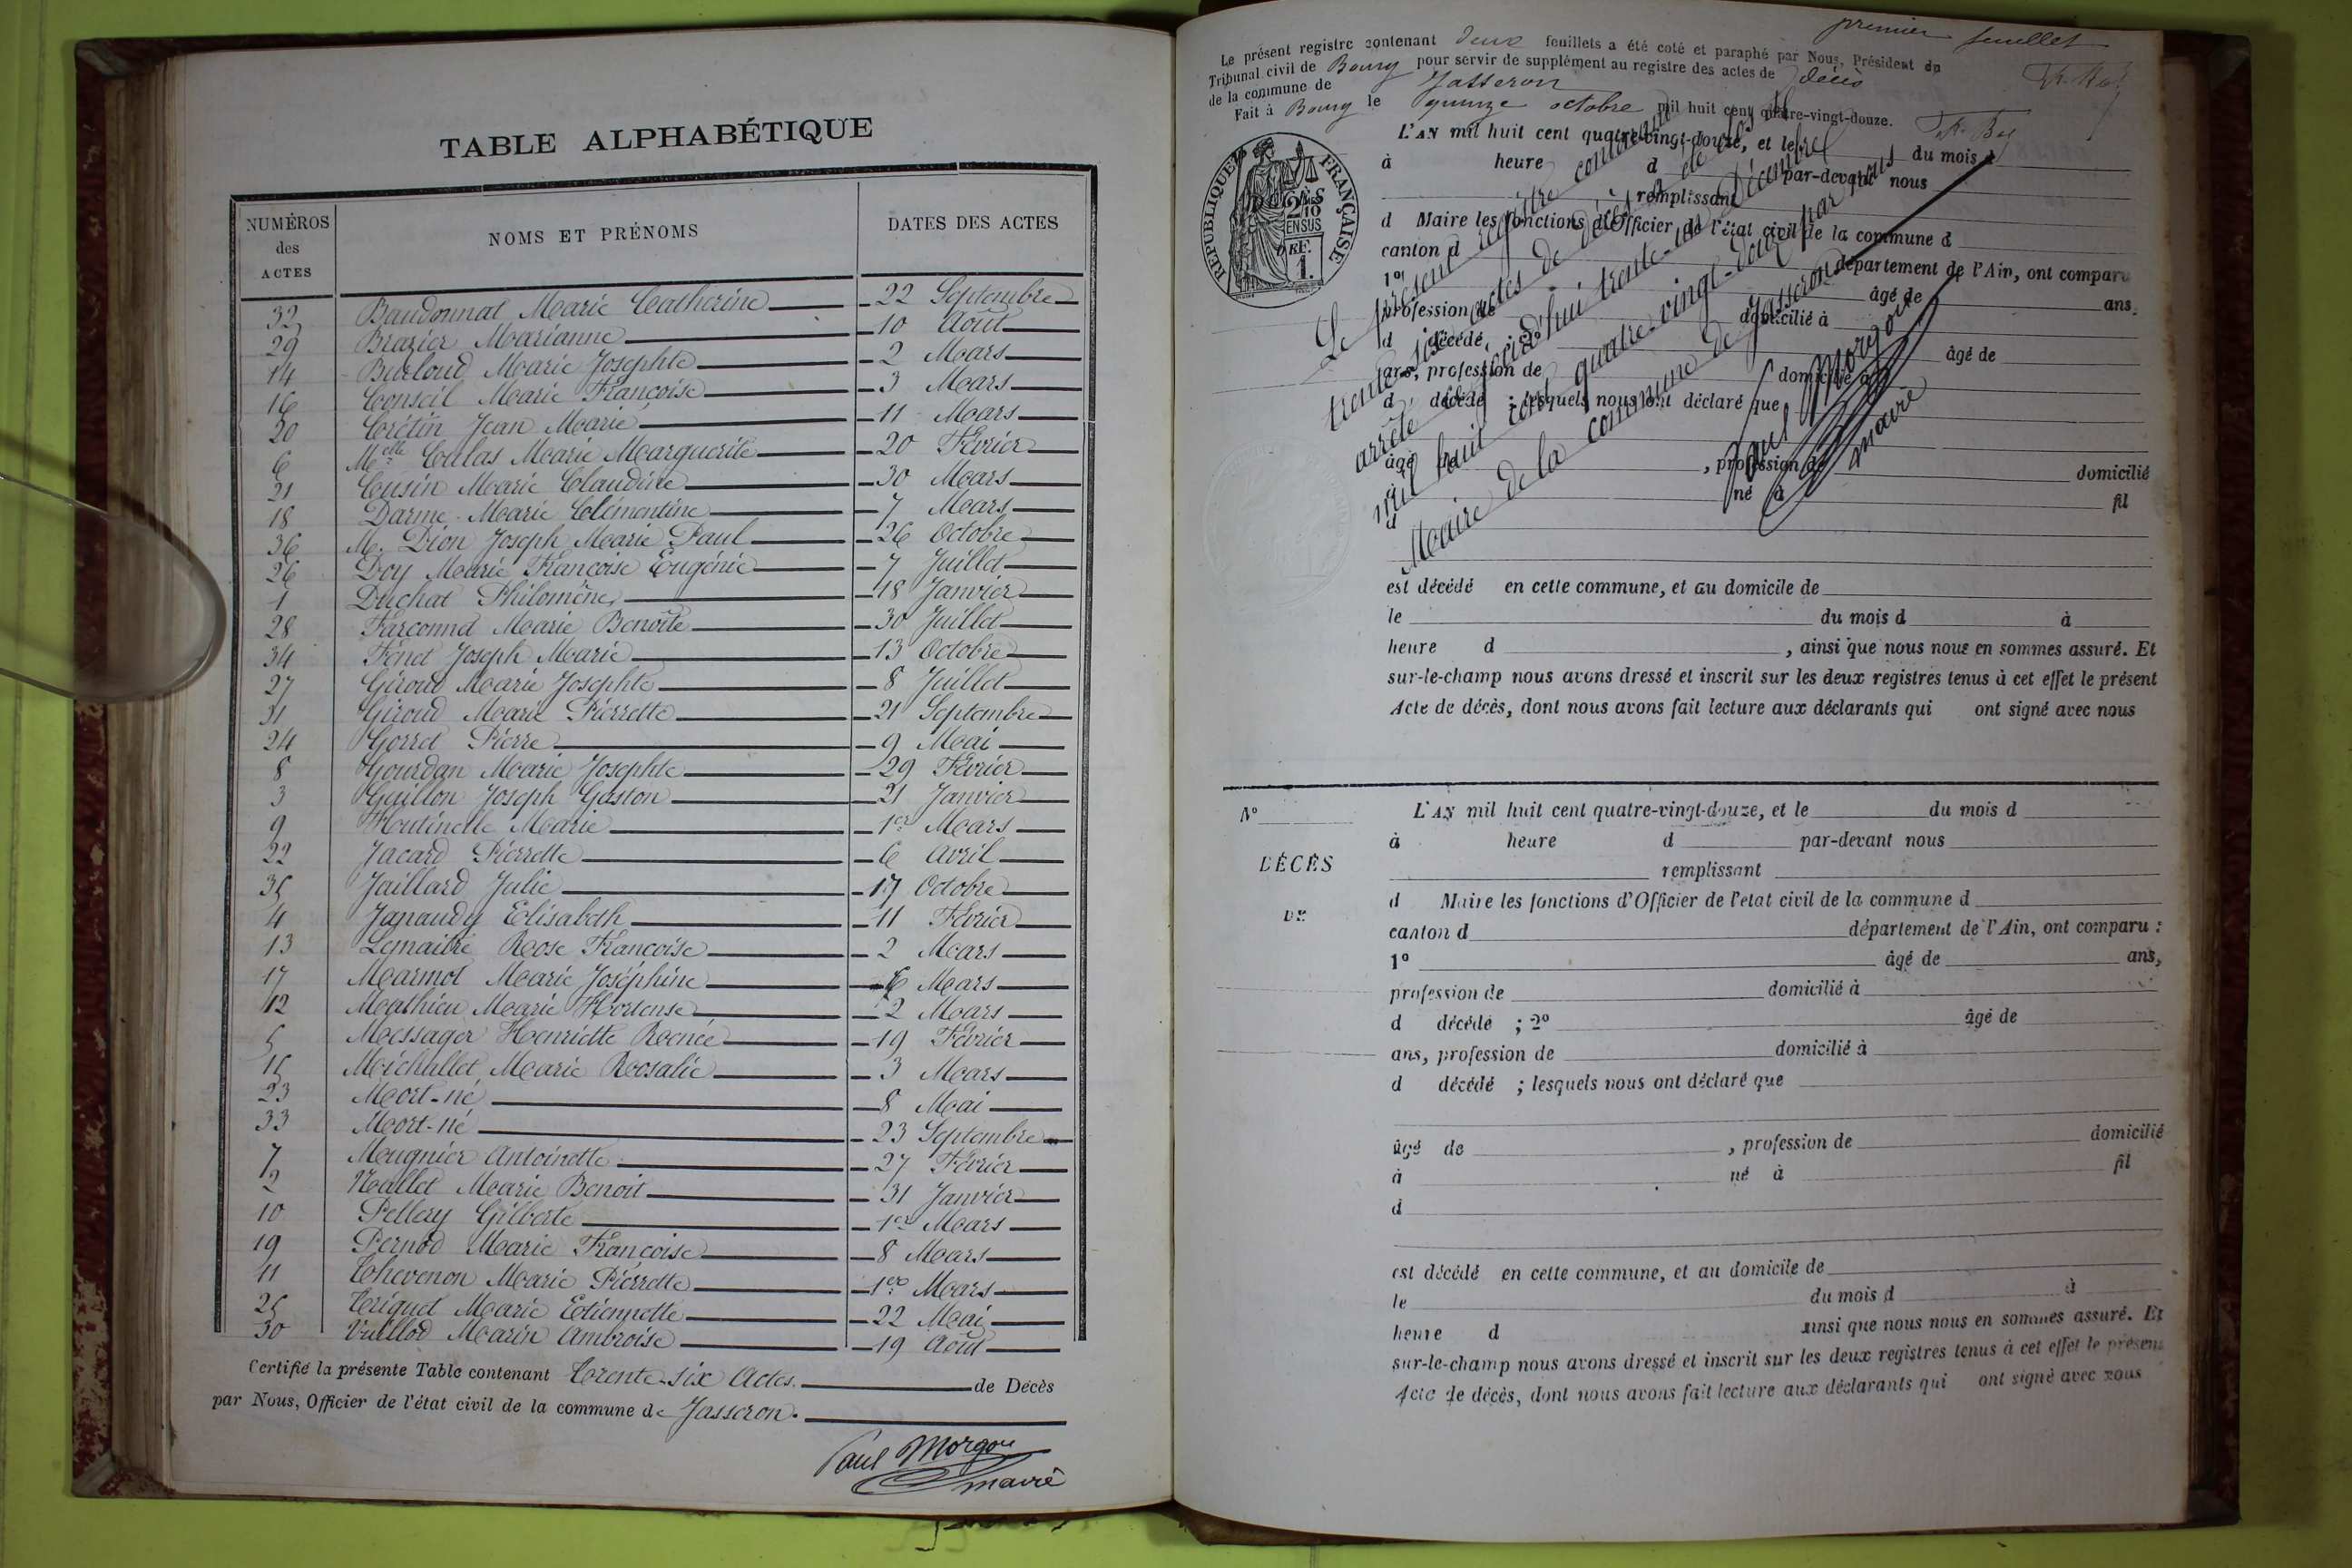 TABLE ALPHABÉTIQUE
NUMÉROS des ACTES NOMS ET PRÉNOMS DATES DES ACTES
32 Baudonnat Marie Catherine 22 Septembre
29 Brazier Marianne 10 Août
14 Burloud Marie Josephte 2 Mars
16 Conseil Marie Françoise 3 Mars
20 Crétin Jean Marie 11 Mars
6 Melle Culas Marie Marguerite 20 Février
21 Cusin Marie Claudine 30 Mars
18 Darme Marie Clémentine 7 Mars
36 M. Dion Joseph Marie Paul 26 Octobre
26 Doy Marie Françoise Eugénie 7 Juillet
1 Duchat Philomène 18 Janvier
28 Farconnet Marie Benoîte 30 Juillet
34 Fénet Joseph Marie 13 Octobre
27 Giroud Marie Josephte 8 Juillet
31 Giroud Marie Pierrette 21 Septembre
24 Gorret Pierre 9 Mai
8 Gourdan Marie Josephte 29 Février
3 Guillon Joseph Gaston 21 Janvier
9 Houtinelle Marie 1er Mars
22 Jacard Pierrette 6 Avril
35 Jaillard Julie 17 Octobre
4 Janaudy Elisabeth 11 Février
13 Lemaitre Rose Françoise 2 Mars
17 Marmot Marie Joséphine 6 Mars
12 Mathieu Marie Hortense 2 Mars
5 Messager Henriette Renée 19 Février
15 Michallet Marie Rosalie 3 Mars
23 Mort-né 8 Mai
33 Mort-né 23 Septembre
7 Mugnier Antoinette 27 Février
2 Nallet Marie Benoit 31 Janvier
10 Pellery Gilberte 1er Mars
19 Pernod Marie Françoise 8 Mars
11 Thevenon Marie Pierrette 1er Mars
25 Teriquet Marie Etiennette 22 Mai
30 Vuillod Marin Ambroise 19 Août
Certifié la présente Table contenant Trente-six Actes. de Décès
par Nous, Officier de l'état civil de la commune de Jasseron.
Paul Morgon
maire
premier feuillet
Le présent registre contenant deux feuillets a été coté et paraphé par Nous, Président du
Tribunal civil de Bourg pour servir de supplément au registre des actes de décès
de la commune de Jasseron
Fait à Bourg le quinze octobre mil huit cent quatre-vingt-douze.
RÉPUBLIQUE FRANÇAISE
2/10 EN SUS
1.
L'AN mil huit cent quatre-vingt-douze, et le du mois d
à heure d par-devant nous
remplissant
d Maire les fonctions d'Officier de l'état civil de la commune d
canton d département de l'Ain, ont comparu
1º âgé de ans,
profession de domicilié à
d décédé ; 2º âgé de
ans, profession de domicilié à
d décédé ; lesquels nous ont déclaré que
âgé de , profession de domicilié
à né à fil
d
Le présent registre contenant
trente-six actes de décès a été
arrêté aujourd'hui trente-un Décembre
mil huit cent quatre-vingt-douze par nous
Maire de la commune de Jasseron
Paul Morgon
maire
est décédé en cette commune, et au domicile de
le du mois d à
heure d , ainsi que nous nous en sommes assuré. Et
sur-le-champ nous avons dressé et inscrit sur les deux registres tenus à cet effet le présent
Acte de décès, dont nous avons fait lecture aux déclarants qui ont signé avec nous
Nº
DÉCÈS
DE
L'AN mil huit cent quatre-vingt-douze, et le du mois d
à heure d par-devant nous
remplissant
d Maire les fonctions d'Officier de l'etat civil de la commune d
canton d département de l'Ain, ont comparu :
1º âgé de ans,
profession de domicilié à
d décédé ; 2º âgé de
ans, profession de domicilié à
d décédé ; lesquels nous ont déclaré que
âgé de , profession de domicilié
à né à fil
d
est décédé en cette commune, et au domicile de
le du mois d à
heure d ainsi que nous nous en sommes assuré. Et
sur-le-champ nous avons dressé et inscrit sur les deux registres tenus à cet effet le présent
Acte de décès, dont nous avons fait lecture aux déclarants qui ont signé avec nous